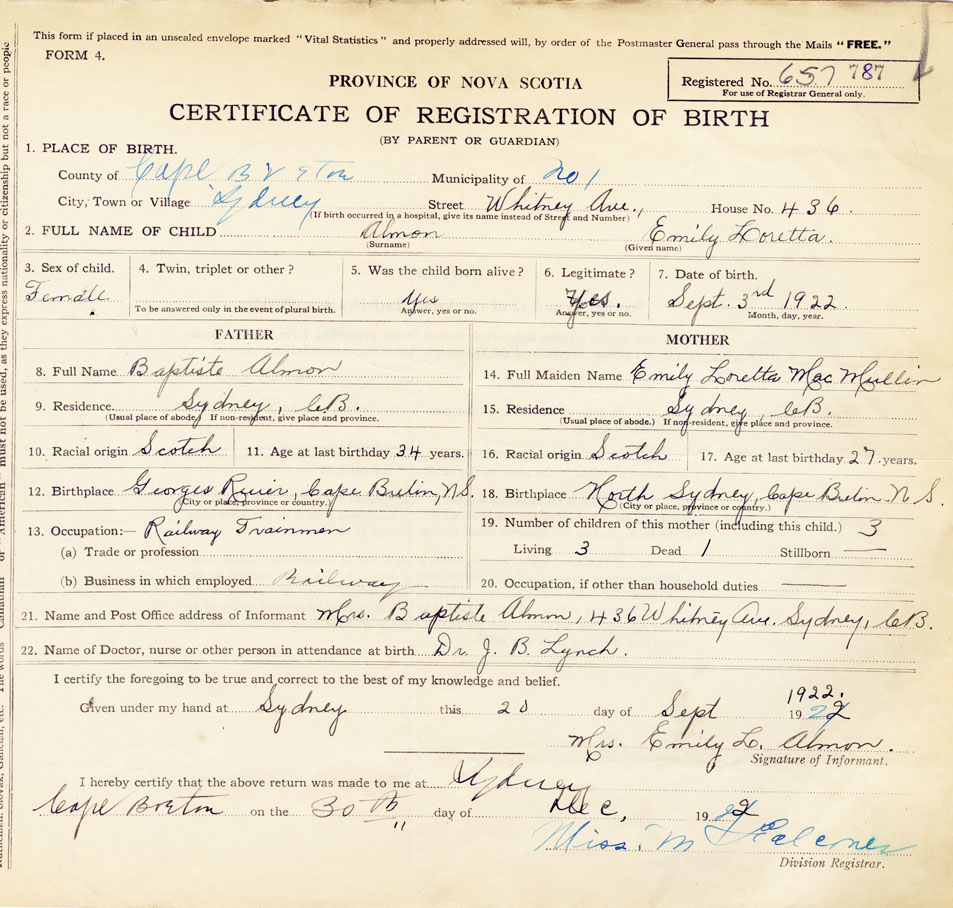 This form if placed in an unsealed envelope marked "Vital Statistics" and properly addressed will, by order of the Postmaster General pass through the Mails "FREE."
FORM 4.
Registered No. 657 787
For use of Registrar General only.
PROVINCE OF NOVA SCOTIA
CERTIFICATE OF REGISTRATION OF BIRTH
(BY PARENT OR GUARDIAN)
1. PLACE OF BIRTH.
County of Cape Breton Municipality of No 1
City, Town or Village Sydney Street Whitney Ave., House No. 436.
(If birth occurred in a hospital, give its name instead of Street and Number)
2. FULL NAME OF CHILD Almon Emily Loretta.
(Surname) (Given name)
3. Sex of child. 4. Twin, triplet or other? 5. Was the child born alive? 6. Legitimate? 7. Date of birth.
Female Yes Yes. Sept. 3rd 1922.
To be answered only in the event of plural birth. Answer, yes or no. Answer, yes or no. Month, day, year.
FATHER
8. Full Name Baptiste Almon
9. Residence Sydney, C.B.
(Usual place of abode.) If non-resident, give place and province.
10. Racial origin Scotch 11. Age at last birthday 34 years.
12. Birthplace Georges River, Cape Breton, N.S.
(City or place, province or country.)
13. Occupation:— Railway Trainmen
(a) Trade or profession
(b) Business in which employed Railway
MOTHER
14. Full Maiden Name Emily Loretta Mac Mullin
15. Residence Sydney, C.B.
(Usual place of abode.) If non-resident, give place and province.
16. Racial origin Scotch 17. Age at last birthday 27 years.
18. Birthplace North Sydney, Cape Breton N S.
(City or place, province or country.)
19. Number of children of this mother (including this child.) 3
Living 3 Dead 1 Stillborn —
20. Occupation, if other than household duties —
21. Name and Post Office address of Informant Mrs. Baptiste Almon, 436 Whitney Ave. Sydney, C.B.
22. Name of Doctor, nurse or other person in attendance at birth Dr. J. B. Lynch.
I certify the foregoing to be true and correct to the best of my knowledge and belief.
1922.
Given under my hand at Sydney this 20 day of Sept 1922
Mrs. Emily L. Almon.
Signature of Informant.
I hereby certify that the above return was made to me at Sydney
Cape Breton on the 30th day of Dec, 1922
Miss. M Falconer
Division Registrar.
must not be used, as they express nationality or citizenship but not a race or people